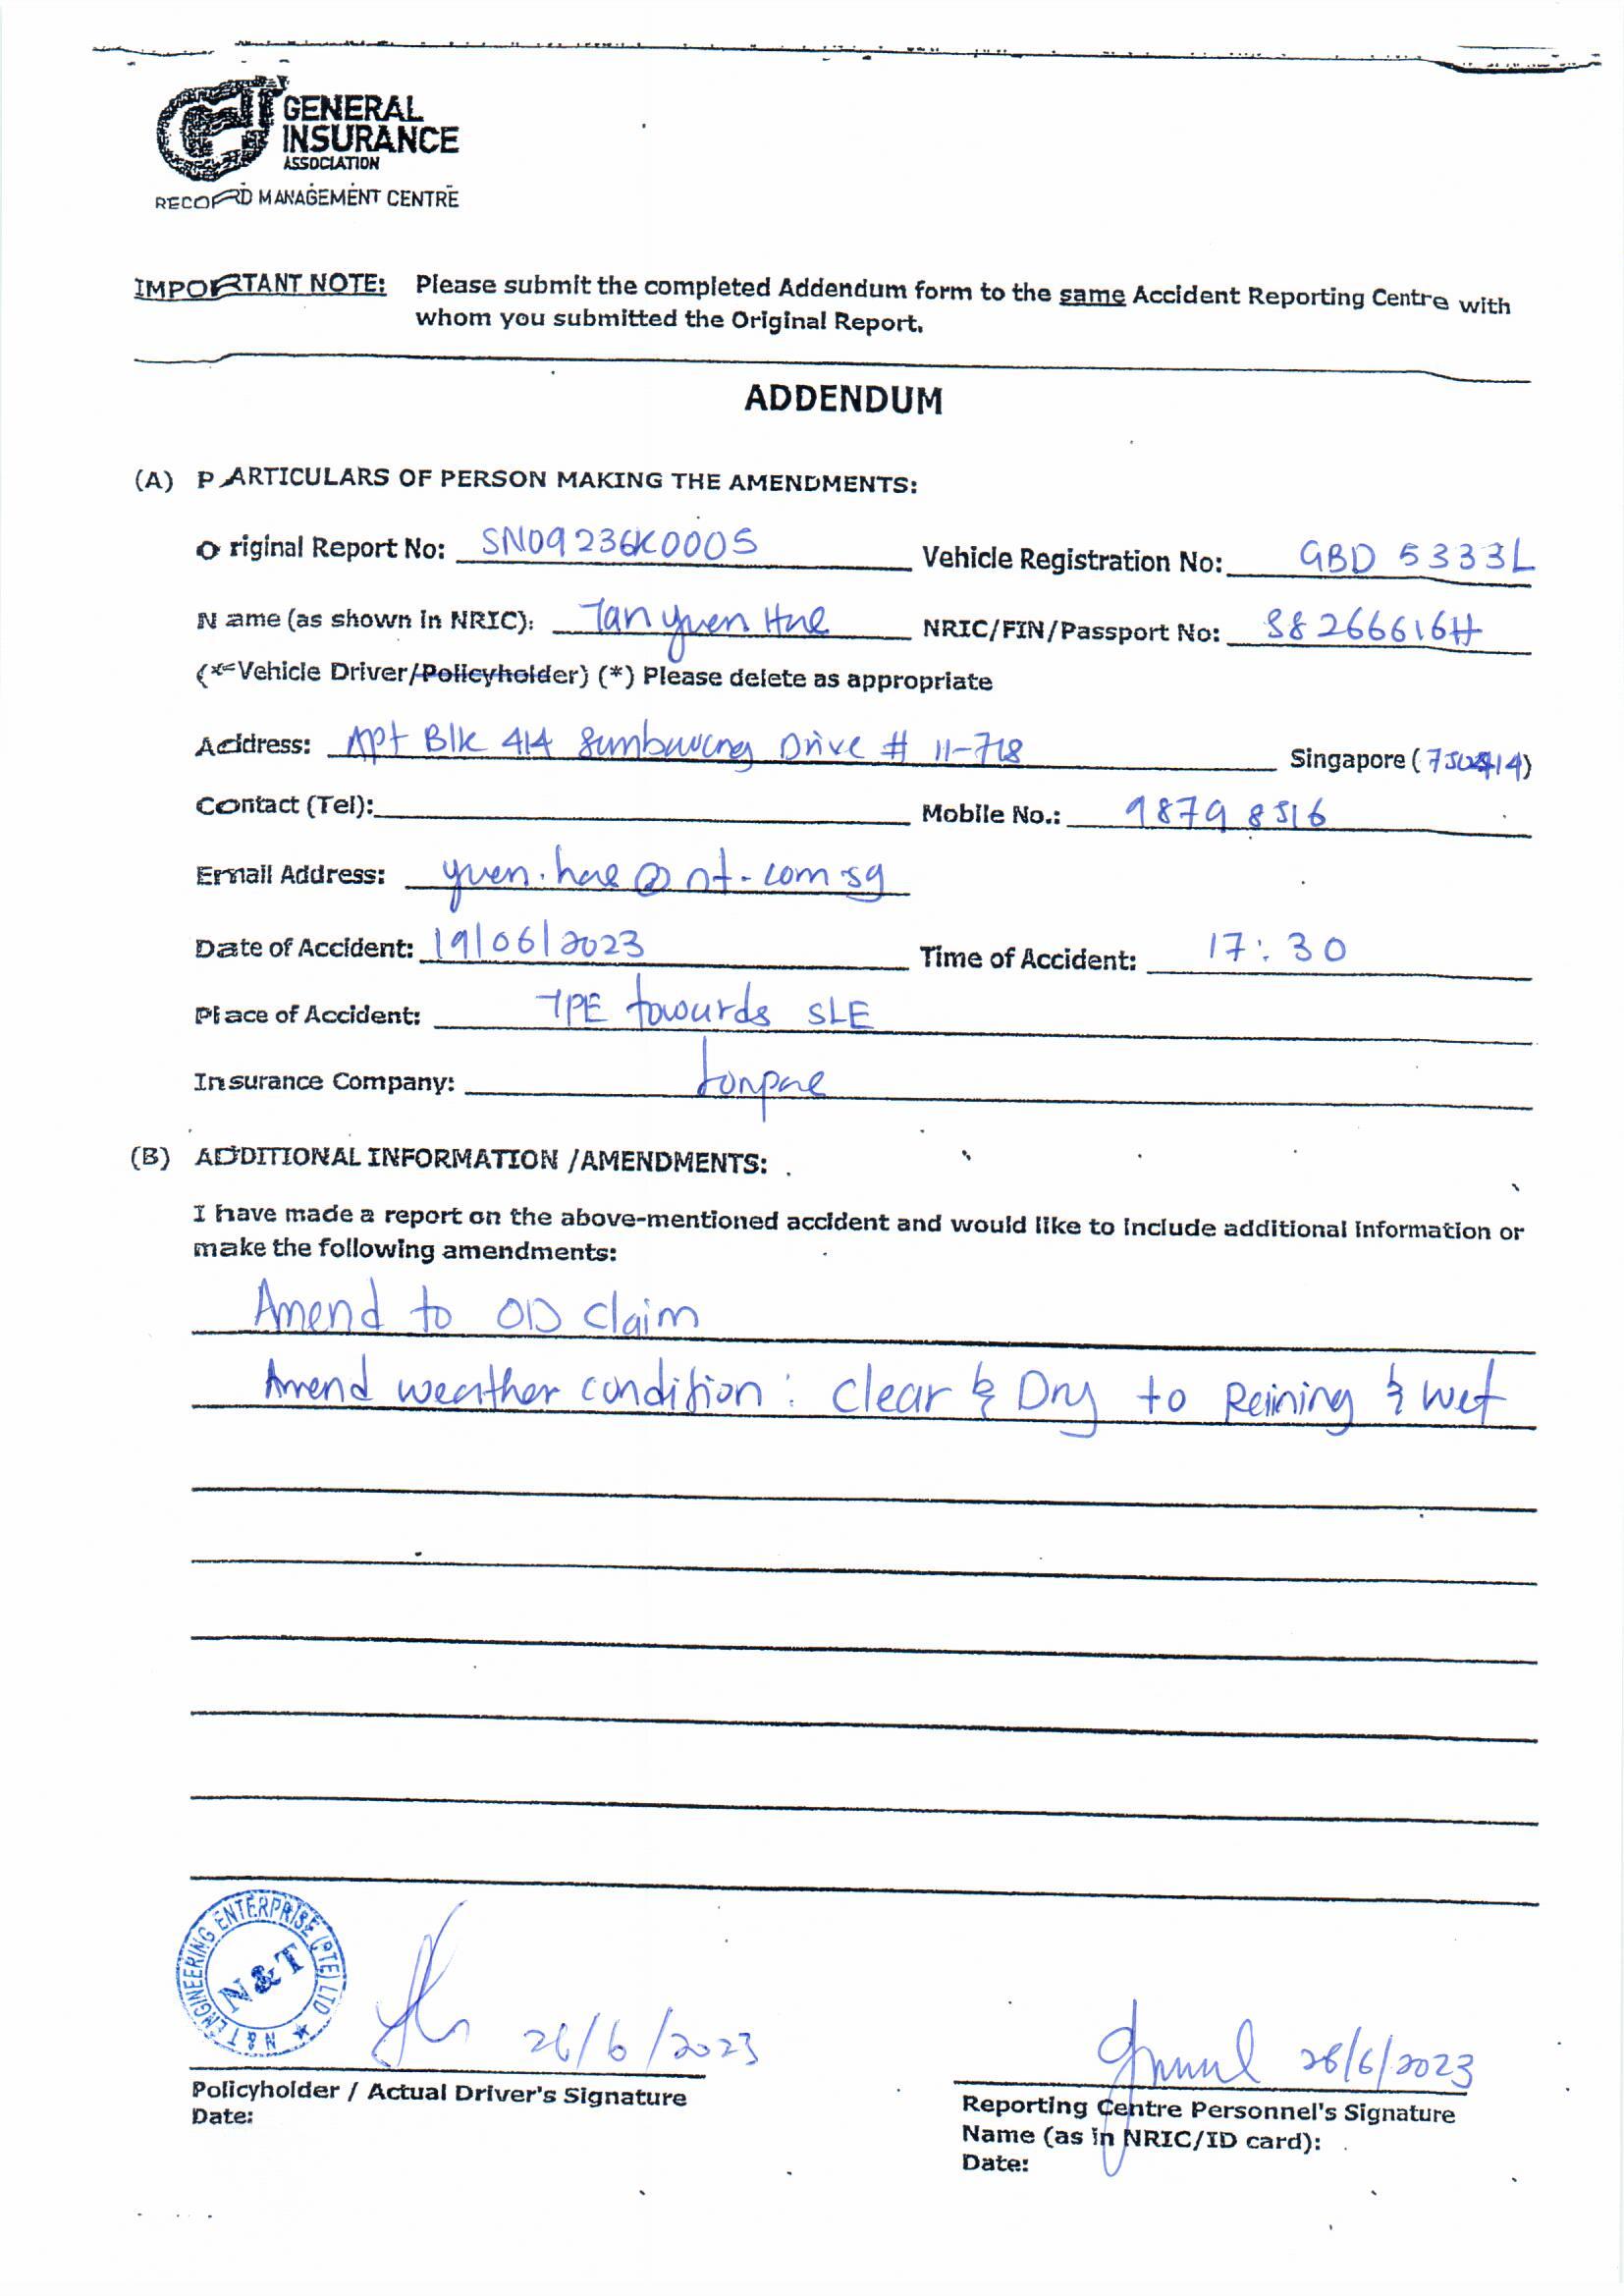 GENERAL
INSURANCE
ASSOCIATION
RECORD MANAGEMENT CENTRE
IMPORTANT NOTE: Please submit the completed Addendum form to the same Accident Reporting Centre with
whom you submitted the Original Report.
ADDENDUM
(A) PARTICULARS OF PERSON MAKING THE AMENDMENTS:
Original Report No: SN09236K0005 Vehicle Registration No: GBD 5333L
Name (as shown in NRIC): Tan Yuen Hue NRIC/FIN/Passport No: S8266616H
(*Vehicle Driver/Policyholder) (*) Please delete as appropriate
Address: Apt Blk 414 Sembawang Drive # 11-718 Singapore (750414)
Contact (Tel): Mobile No.: 9879 8516
Email Address: yuen.hue@nt.com.sg
Date of Accident: 19/06/2023 Time of Accident: 17:30
Place of Accident: TPE towards SLE
Insurance Company:
(B) ADDITIONAL INFORMATION /AMENDMENTS:
I have made a report on the above-mentioned accident and would like to include additional information or
make the following amendments:
Amend to OD claim
Amend weather condition: Clear & Dry to Raining & wet
N & T ENGINEERING ENTERPRISE (PTE) LTD
N&T
26/6/2023 26/6/2023
Policyholder / Actual Driver's Signature
Date:
Reporting Centre Personnel's Signature
Name (as in NRIC/ID card):
Date: